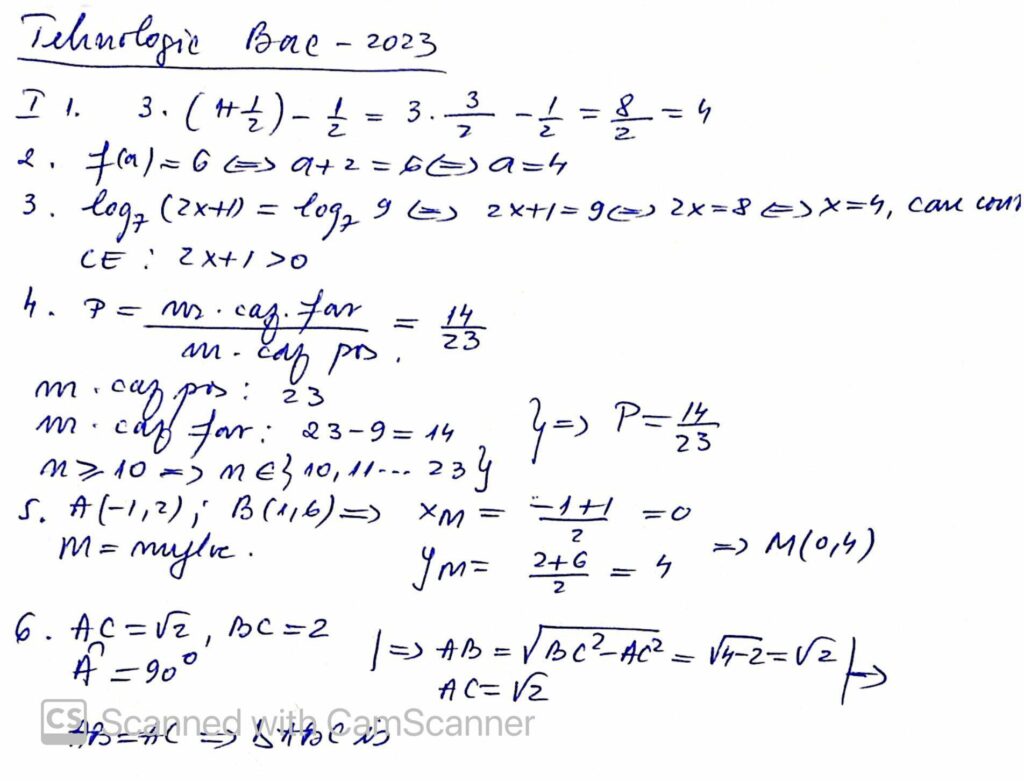 Tehnologic Bac - 2023
I 1. 3·(1+1/2) - 1/2 = 3·3/2 - 1/2 = 8/2 = 4
2. f(a) = 6 <=> a+2 = 6 <=> a=4
3. log₇(2x+1) = log₇ 9 <=> 2x+1 = 9 <=> 2x=8 <=> x=4, care
CE : 2x+1 >0
4. P = nr. caz. fav / nr. caz pos. = 14/23
nr. caz pos : 23
nr. caz fav : 23-9 = 14 } => P = 14/23
n ⩾ 10 => n ∈ } 10, 11... 23 }
5. A(-1,2) ; B(1,6) => xM = -1+1/2 = 0
M = yM = 2+6/2 = 4 => M(0,4)
6. AC = √2, BC = 2 | => AB = √BC²-AC² = √4-2 = √2 | =>
Â = 90° AC = √2
AB = AC => ΔABC is
CS Scanned with CamScanner